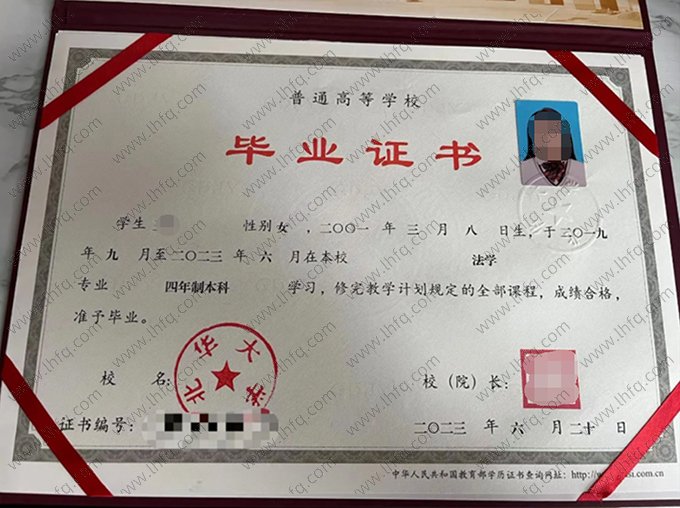 普通高等学校
毕业证书
学生 性别 女 ，二〇〇一 年 三 月 八 日生，于二〇一九
年 九 月至二〇二三 年 六 月在本校 法学
专业 四年制本科 学习，修完教学计划规定的全部课程，成绩合格，
准予毕业。
北华大学
校 名： 校（院）长：
证书编号： 二〇二三 年 六 月 二十 日
中华人民共和国教育部学历证书查询网址：http://www.chsi.com.cn
www.lhfq.com